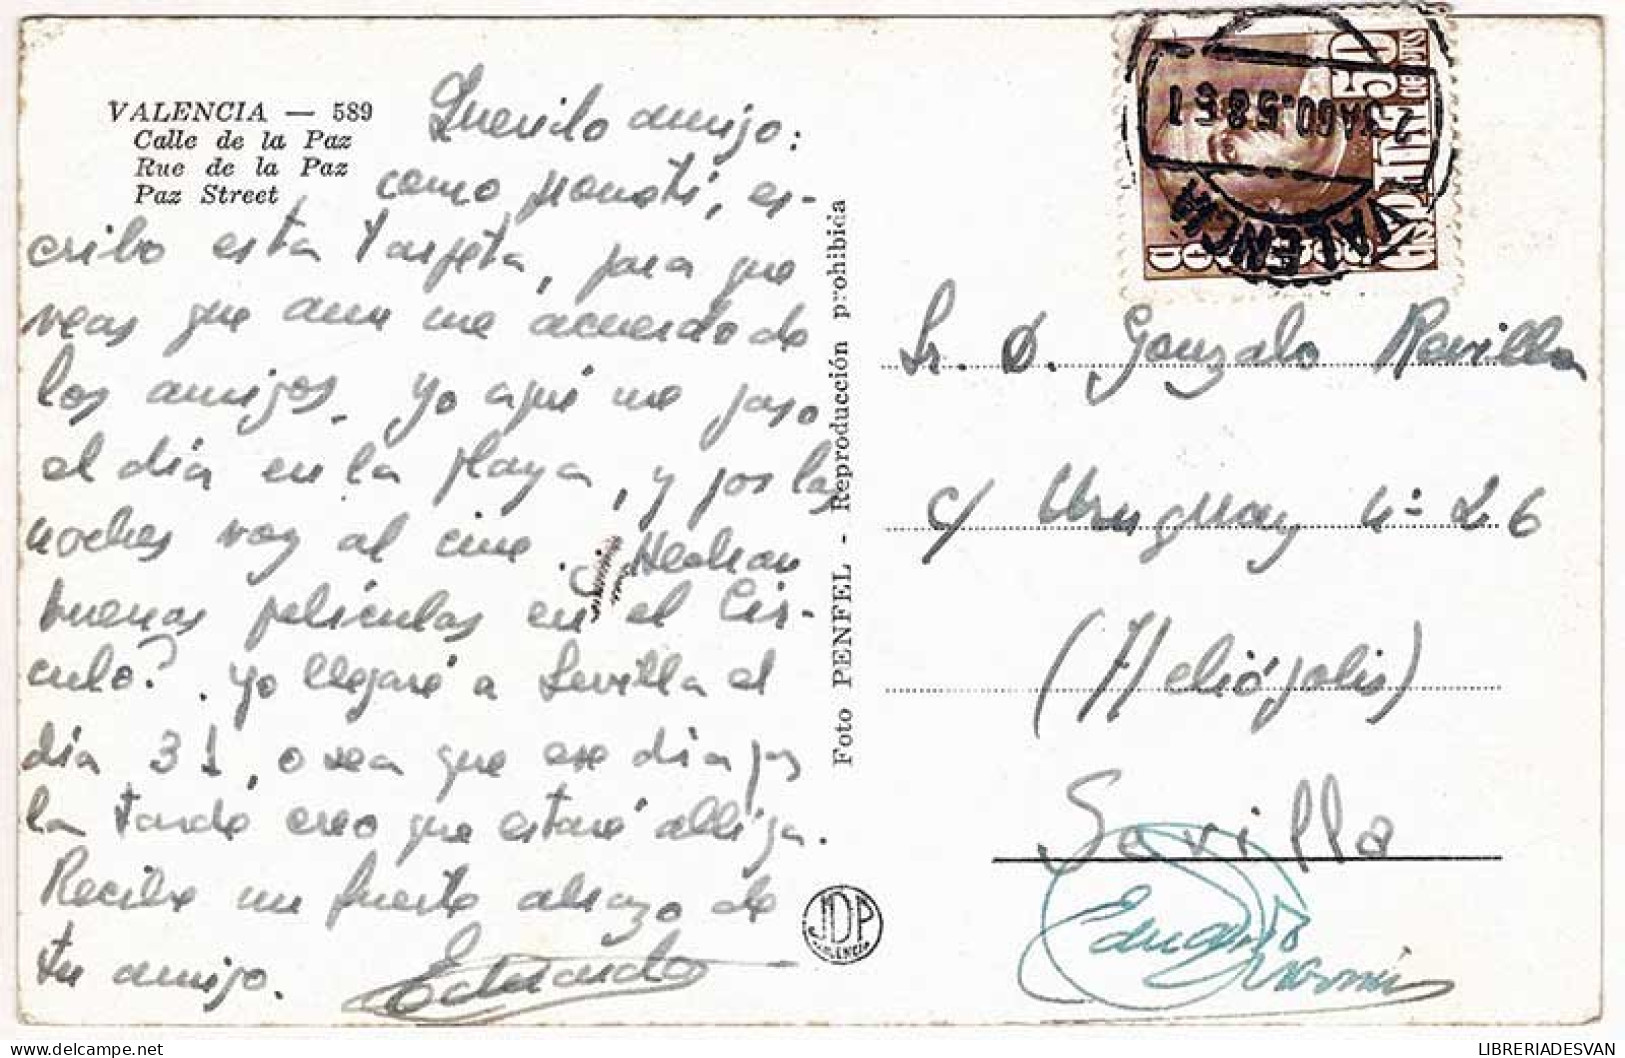 VALENCIA — 589
Calle de la Paz
Rue de la Paz
Paz Street
Querido amigo:
como prometí, es-
cribo esta tarjeta, para que
veas que aun me acuerdo de
los amigos. Yo aquí me paso
el día en la playa, y por las
noches voy al cine. ¿Hechan
buenas películas en el Cír-
culo?. Yo llegaré a Sevilla el
día 31, o sea que ese día por
la tarde creo que estaré allí ya.
Recibe un fuerte abrazo de
tu amigo. Eduardo
Foto PENFEL - Reproducción prohibida
JDP
VALENCIA
50
CENTIMOS
CORREOS
ESPAÑA
VALENCIA
Sr. D. Gonzalo Revilla
c/ Uruguay nº 26
(Heliópolis)
Sevilla
Eduardo
© www.delcampe.net
LIBRERIADESVAN